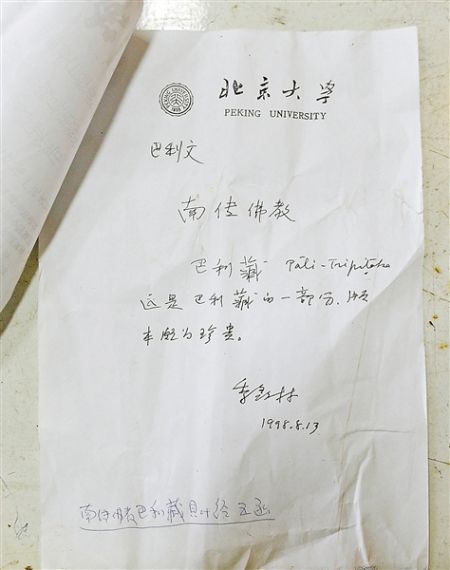 PEKING UNIVERSITY
1898
北京大學
PEKING UNIVERSITY
巴利文
南传佛教
巴利藏 Pāli-Tripiṭaka
这是巴利藏的一部分、版
本颇为珍贵。
季羡林
1998.8.13
南传佛教巴利藏貝叶经五函